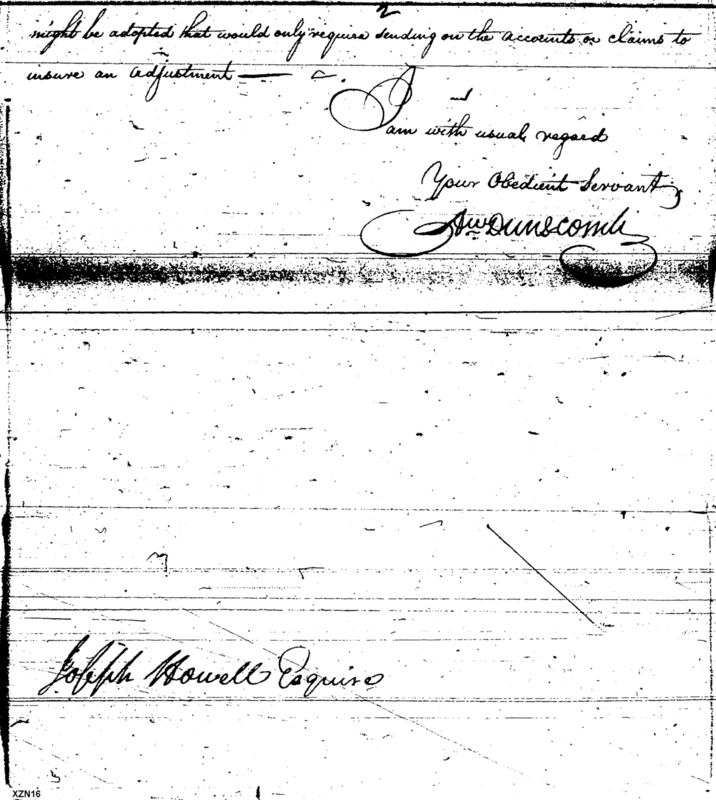 2
might be adopted that would only require sending on the accounts or claims to
insure an adjustment —
I
am with usual regard
Your Obedient Servant,
Aw Dunscomb
Joseph Howell Esquire
XZN16